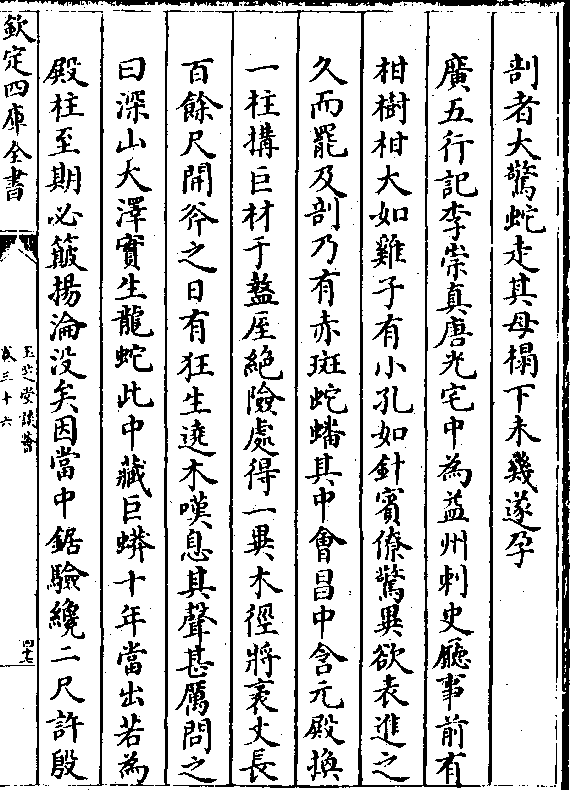 剖者大驚蛇走其母榻下未幾遂孕
廣五行記李崇真唐光宅中為益州刺史廳事前有
柑樹柑大如雞子有小孔如針賓僚驚異欲表進之
久而罷及剖乃有赤斑蛇蟠其中會昌中含元殿換
一柱搆巨材于盩厔絶險處得一異木徑將袤丈長
百餘尺開斧之日有狂生遶木嘆息其聲甚厲問之
曰深山大澤實生龍蛇此中藏巨蟒十年當出若為
殿柱至期必簸揚淪没矣因當中鋸驗纔二尺許殷
欽定四庫全書
玉芝堂談薈
卷三十六
四十七